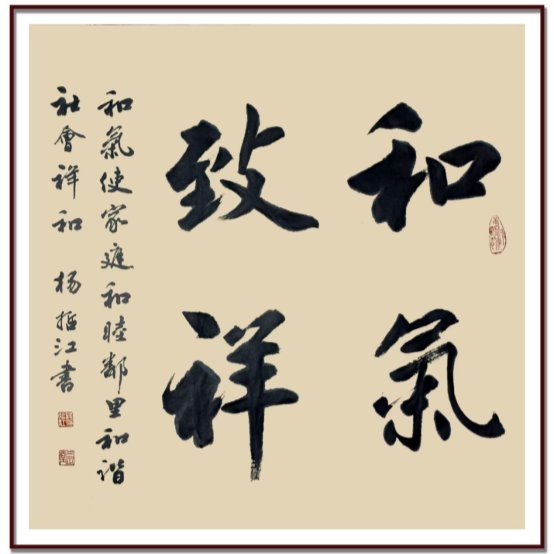 和氣
致祥
和氣使家庭和睦鄰里和谐
社會祥和 杨哲江書